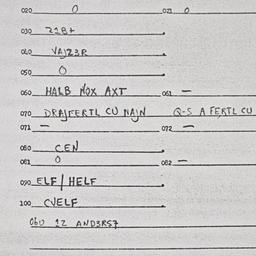 020 0 021 0
030 Z1B7
040 VAJZ3R
050 0
060 HALB NOX AXT 061 —
070 DRAJFERTL CU NAJN Q-S A FERTL CU
071 — 072 —
080 CEN
081 0 082 —
090 ELF/HELF
100 CVELF
060 1Z AND3RS7